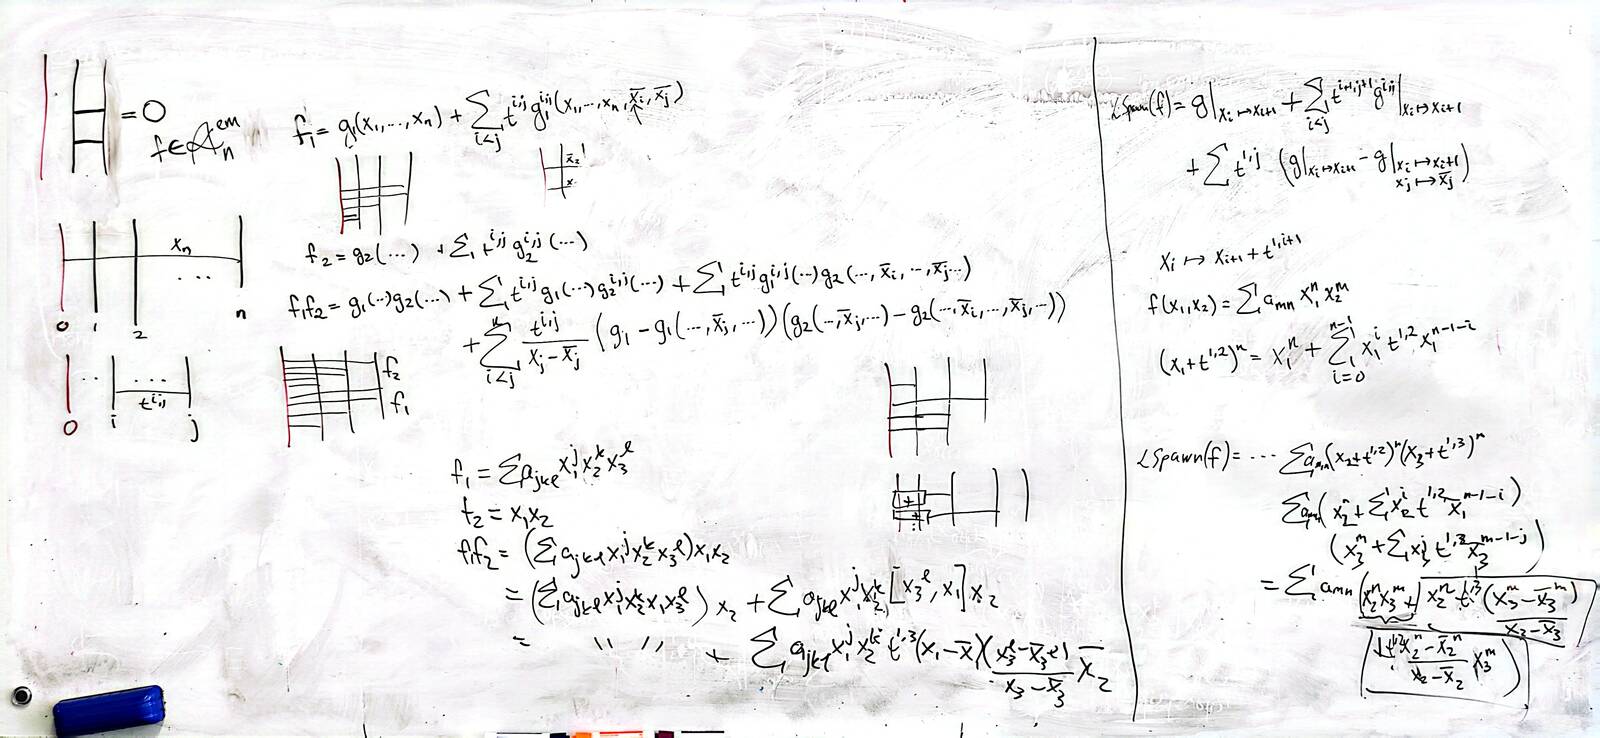 = 0
f ∈ 𝒜ₙᵉᵐ
f₁ = g₁(x₁,...,xₙ) + Σ_{i<j} t^{i,j} g₁^{i,j}(x₁,...,xₙ, x̄ᵢ, x̄ⱼ)
x̄₂
x
xₙ
...
0 1 2 n
f₂ = g₂(...) + Σ t^{i,j} g₂^{i,j}(...)
f₁f₂ = g₁(...)g₂(...) + Σ t^{i,j} g₁(...)g₂^{i,j}(...) + Σ t^{i,j} g₁^{i,j}(...)g₂(..., x̄ᵢ, ..., x̄ⱼ...)
+ Σ_{i<j} t^{i,j}/(xⱼ - x̄ⱼ) (g₁ - g₁(..., x̄ⱼ, ...))(g₂(..., x̄ⱼ, ...) - g₂(..., x̄ᵢ, ..., x̄ⱼ, ...))
.. ...
t^{i,j}
0 i j
f₂
f₁
f₁ = Σ a_{jkl} x₁ʲ x₂ᵏ x₃ˡ
f₂ = x₁x₂
f₁f₂ = (Σ a_{jkl} x₁ʲ x₂ᵏ x₃ˡ) x₁x₂
= (Σ a_{jkl} x₁ʲ x₂ᵏ x₁ x₃ˡ) x₂ + Σ a_{jkl} x₁ʲ x₂ᵏ [x₃ˡ, x₁] x₂
= " " + Σ a_{jkl} x₁ʲ x₂ᵏ t^{1,3} (x₁ - x̄)(x₃ˡ - x̄₃ˡ)/(x₃ - x̄₃) x₂
+
+
LSpawn(f) = g|_{xᵢ↦xᵢ₊₁} + Σ_{i<j} t^{i+1,j+1} g^{i,j}|_{xᵢ↦xᵢ₊₁}
+ Σ t^{1,j} (g|_{xᵢ↦xᵢ₊₁} - g|_{xᵢ↦xᵢ₊₁, xⱼ↦x̄ⱼ})
xᵢ ↦ xᵢ₊₁ + t^{1,i+1}
f(x₁,x₂) = Σ a_{mn} x₁ⁿ x₂ᵐ
(x₁ + t^{1,2})ⁿ = x₁ⁿ + Σ_{i=0}^{n-1} x₁ⁱ t^{1,2} x₁^{n-1-i}
LSpawn(f) = ... Σ a_{mn} (x₂ + t^{1,2})ⁿ (x₃ + t^{1,3})ᵐ
Σ a_{mn} (x₂ⁿ + Σ x₂ⁱ t^{1,2} x̄₁^{n-1-i})
(x₃ᵐ + Σ x₃ʲ t^{1,3} x̄₃^{m-1-j})
= Σ a_{mn} (x₂ⁿ x₃ᵐ + x₂ⁿ t^{1,3} (x₃ᵐ - x̄₃ᵐ)/(x₃ - x̄₃)
+ t^{1,2} (x₂ⁿ - x̄₂ⁿ)/(x₂ - x̄₂) x₃ᵐ)